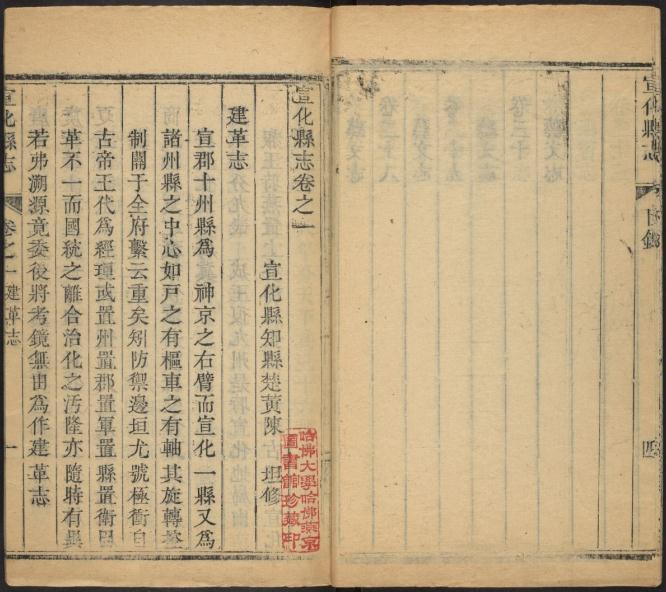 宣化縣志
目錄
四
宣化縣志卷之一
宣化縣知縣楚黃陳坦修
建革志
宣郡十州縣為神京之右臂而宣化一縣又為
諸州縣之中心如戸之有樞車之有軸其旋轉
制闔于全府繫云重矣矧防禦邊垣尤號極衝自
古帝王代為經理或置州置郡置軍置縣置衛因
革不一而國統之離合治化之汚隆亦隨時有異
若弗溯源竟委後將考鏡無由為作建革志
宣化縣志
卷之一 建革志
一
哈佛大學哈佛燕京
圖書館珍藏印